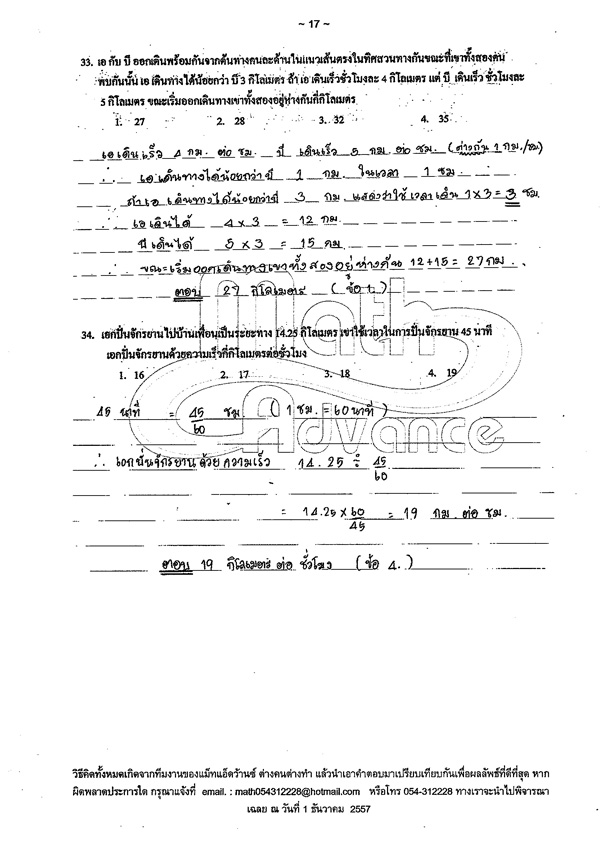 ~ 17 ~
33. เอ กับ บี ออกเดินพร้อมกันจากต้นทางคนละด้านในแนวเส้นตรงในทิศสวนทางกันขณะที่เขาทั้งสองคน
พบกันนั้น เอ เดินทางได้น้อยกว่า บี 3 กิโลเมตร ถ้า เอ เดินเร็วชั่วโมงละ 4 กิโลเมตร แต่ บี เดินเร็ว ชั่วโมงละ
5 กิโลเมตร ขณะเริ่มออกเดินทางเขาทั้งสองอยู่ห่างกันกี่กิโลเมตร
1. 27 2. 28 3. 32 4. 35
เอ เดินเร็ว 4 กม. ต่อ ชม. บี เดินเร็ว 5 กม. ต่อ ชม. (ต่างกัน 1 กม./ชม)
∴ เอ เดินทางได้น้อยกว่าบี 1 กม. ในเวลา 1 ชม.
ถ้า เอ เดินทางได้น้อยกว่าบี 3 กม. แสดงว่าใช้ เวลา เดิน 1x3 = 3 ชม.
∴ เอ เดินได้ 4 x 3 = 12 กม.
บี เดินได้ 5 x 3 = 15 กม
∴ ขณะเริ่มออกเดินทางเขาทั้งสองอยู่ห่างกัน 12+15 = 27 กม.
ตอบ 27 กิโลเมตร (ข้อ 1.)
34. เอกปั่นจักรยานไปบ้านเพื่อนเป็นระยะทาง 14.25 กิโลเมตร เขาใช้เวลาในการปั่นจักรยาน 45 นาที
เอกปั่นจักรยานด้วยความเร็วกี่กิโลเมตรต่อชั่วโมง
1. 16 2. 17 3. 18 4. 19
45 นาที = 45/60 ชม (1 ชม. = 60 นาที)
∴ เอกปั่นจักรยาน ด้วย ความเร็ว 14.25 ÷ 45/60
= 14.25 x 60/45 = 19 กม. ต่อ ชม.
ตอบ 19 กิโลเมตร ต่อ ชั่วโมง (ข้อ 4.)
Math
Advance
วิธีคิดทั้งหมดเกิดจากทีมงานของแม็ทแอ็ดว้านซ์ ต่างคนต่างทำ แล้วนำเอาคำตอบมาเปรียบเทียบกันเพื่อผลลัพธ์ที่ดีที่สุด หาก
ผิดพลาดประการใด กรุณาแจ้งที่ email. : math054312228@hotmail.com หรือโทร 054-312228 ทางเราจะนำไปพิจารณา
เฉลย ณ วันที่ 1 ธันวาคม 2557